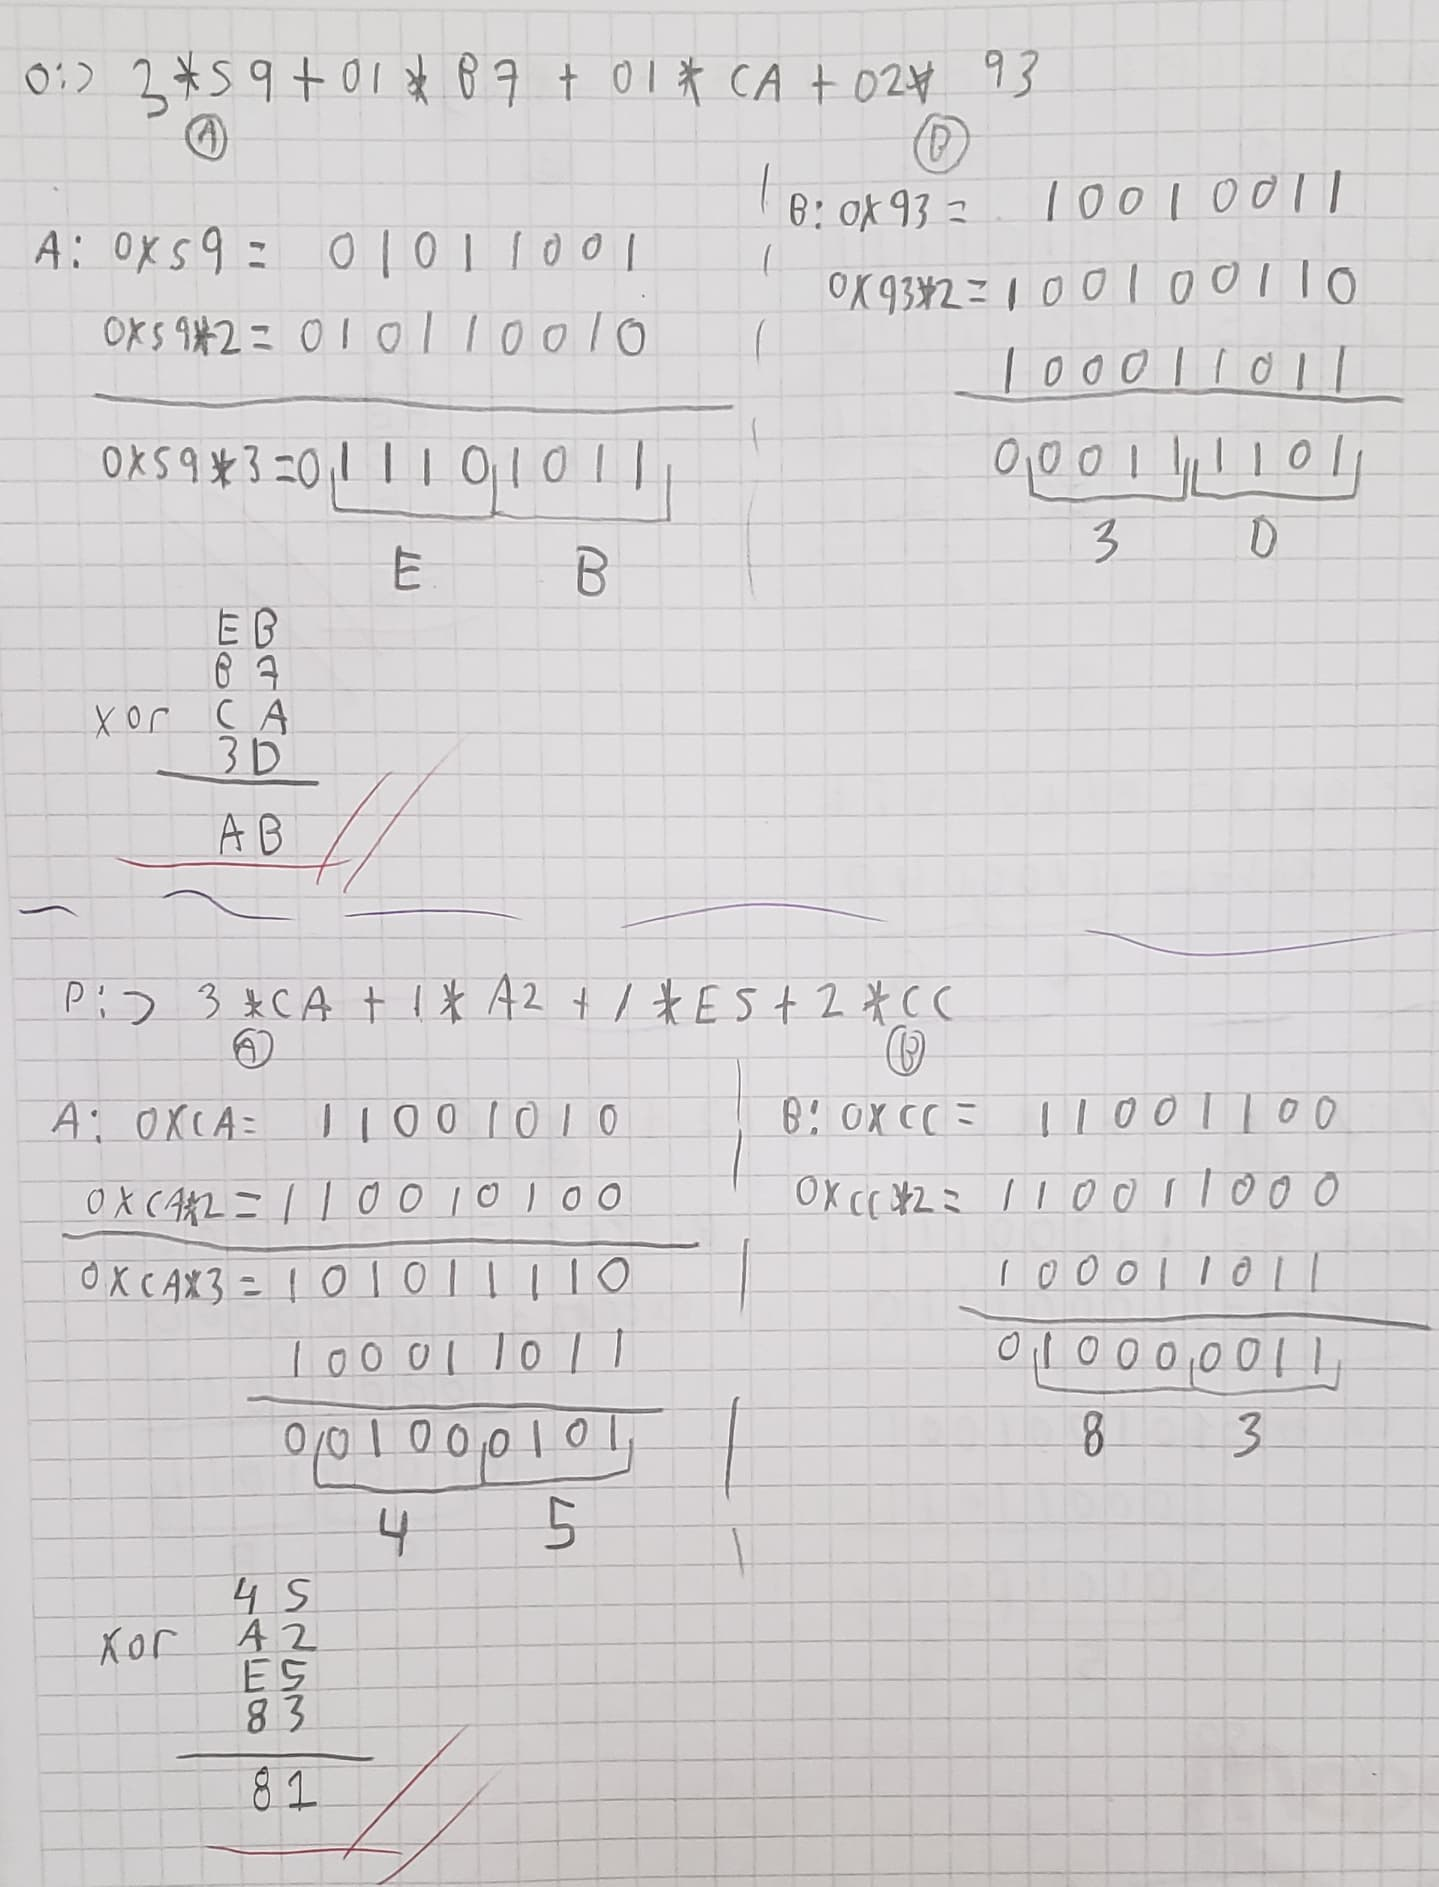 O:> 3*59+01*B7+01*CA+02* 93
A B
A: 0x59= 01011001
0x59*2=010110010
0x59*3=011101011
E B
B: 0x93= 10010011
0x93*2=100100110
100011011
000111101
3 D
EB
B7
xor CA
3D
AB
P:> 3*CA+1*A2+1*E5+2*CC
A B
A: 0xCA= 11001010
0xCA*2=110010100
0xCA*3=101011110
100011011
001000101
4 5
B: 0xCC= 11001100
0xCC*2= 110011000
100011011
010000011
8 3
45
xor A2
E5
83
81